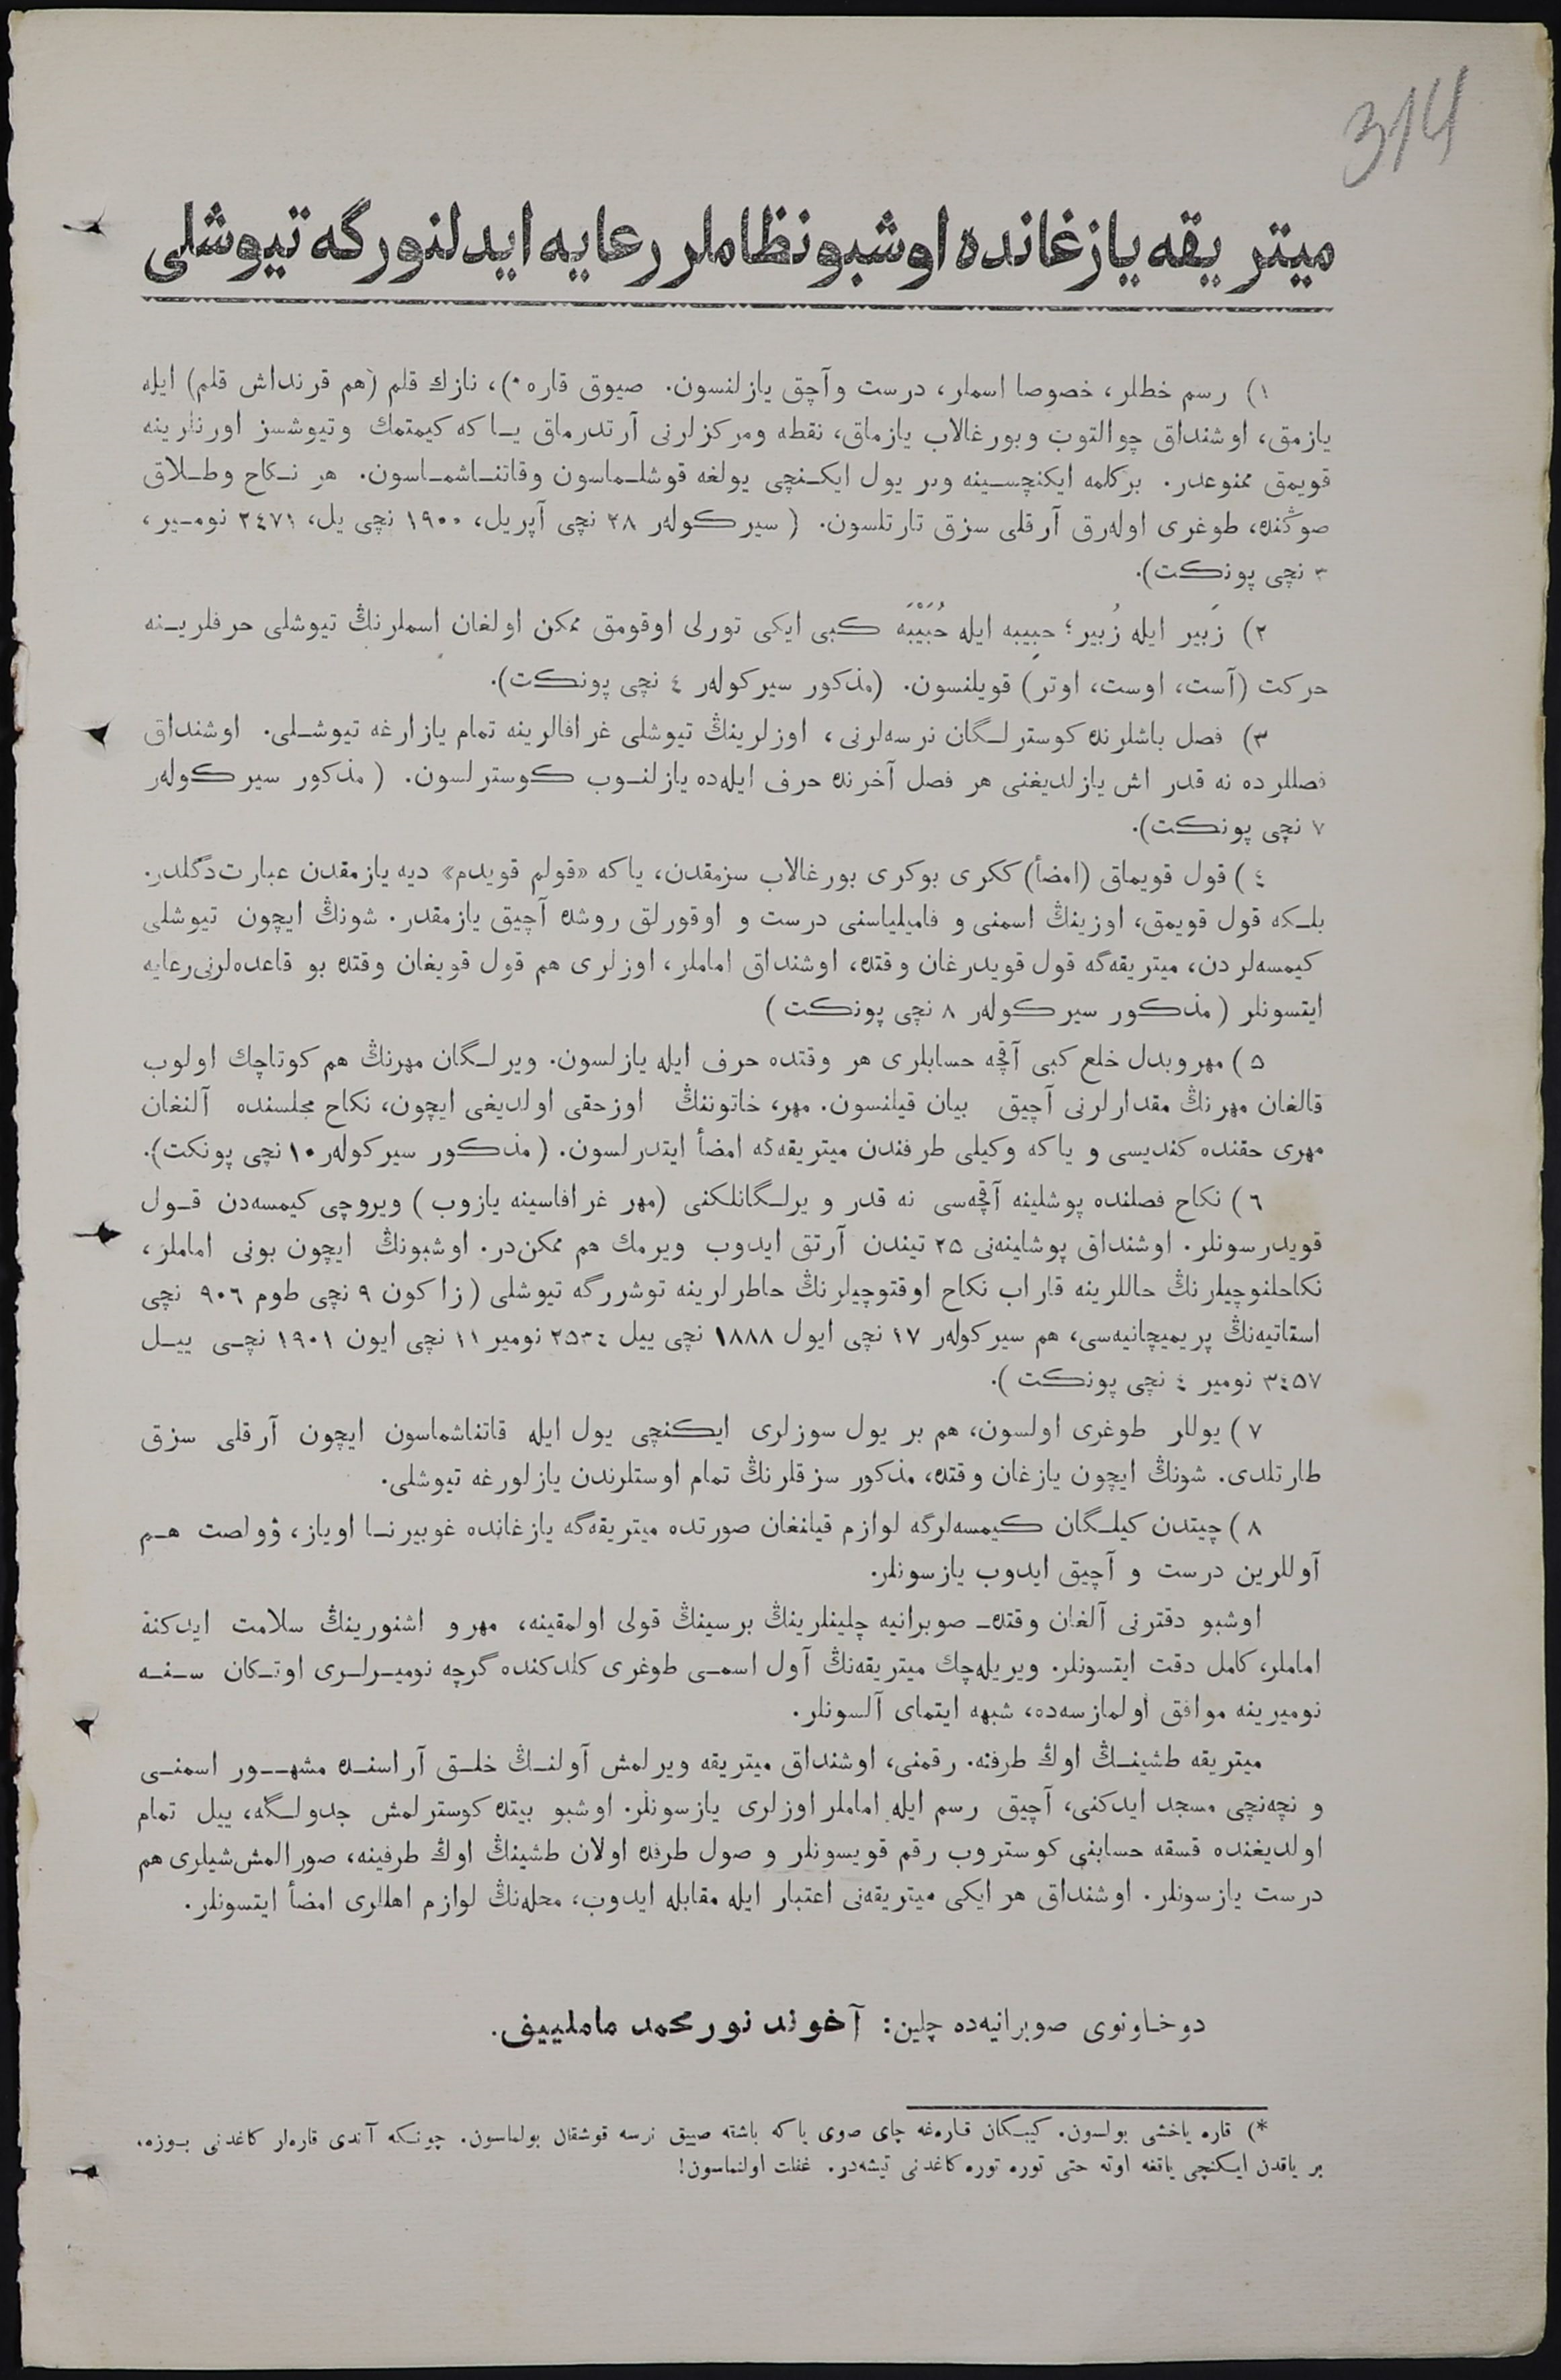 314
ميتريقه يازغانده اوشبو نظاملر رعايه ايدلنورگه تيوشلى
١) رسم خطلر، خصوصا اسملر، درست وآچق يازلنسون. صيوق قاره *)، نازك قلم (هم قرنداش قلم) ايله
يازمق، اوشنداق چوالتوب وبورغالاب يازماق، نقطه ومركزلرنى آرتدرماق يـا كه كيمتمك وتيوشسز اورنلرينه
قويمق ممنوعدر. بركلمه ايكنچسـينه وبر يول ايكـنچى يولغه قوشلـماسون وقاتنـاشمـاسون. هر نـكاح وطـلاق
صوڭنده، طوغرى اولەرق آرقلى سزق تارتلسون. (سيركولەر ٢٨ نچى آپريل، ١٩٠٠ نچى يل، ٢٤٧١ نومـير،
٣ نچى پونكت).
٢) زَبير ايله زُبير؛ حبِيبه ايله حُبَيْبَه كبى ايكى تورلى اوقومق ممكن اولغان اسملرنڭ تيوشلى حرفلريـنه
حركت (آست، اوست، اوتر) قويلنسون. (مذكور سيركولەر ٤ نچى پونكت).
٣) فصل باشلرنده كوسترلـگان نرسەلرنى، اوزلرينڭ تيوشلى غرافالرينه تمام يازارغه تيوشـلى. اوشنداق
فصللرده نه قدر اش يازلديغنى هر فصل آخرنده حرف ايلەده يازلنـوب كوسترلسون. (مذكور سيركولەر
٧ نچى پونكت).
٤) قول قويماق (امضأ) ككرى بوكرى بورغالاب سزمقدن، ياكه «قولم قويدم» ديه يازمقدن عبارت دگلدر.
بلـكه قول قويمق، اوزينڭ اسمنى و فاميلياسنى درست و اوقورلق روشده آچيق يازمقدر. شونڭ ايچون تيوشلى
كيمسەلردن، ميتريقەگه قول قويدرغان وقتده، اوشنداق اماملر، اوزلرى هم قول قويغان وقتده بو قاعدەلرنى رعايه
ايتسونلر (مذكور سيركولەر ٨ نچى پونكت)
٥) مهر وبدل خلع كبى آقچه حسابلرى هر وقتده حرف ايله يازلسون. ويرلـگان مهرنڭ هم كوتاچك اولوب
قالغان مهرنڭ مقدارلرنى آچيق بيان قيلنسون. مهر، خاتوننڭ اوزحقى اولديغى ايچون، نكاح مجلسنده آلنغان
مهرى حقنده كنديسى و ياكه وكيلى طرفندن ميتريقەگه امضأ ايتدرلسون. (مذكور سيركولەر ١٠ نچى پونكت).
٦) نكاح فصلنده پوشلينه آقچەسى نه قدر ويرلـگانلكنى (مهر غرافاسينه يازوب) ويروچى كيمسەدن قـول
قويدرسونلر. اوشنداق پوشلينەنى ٢٥ تيندن آرتق ايدوب ويرمك هم ممكن در. اوشبونڭ ايچون بونى اماملر،
نكاحلنوچيلرنڭ حاللرينه قاراب نكاح اوقتوچيلرنڭ خاطرلرينه توشررگه تيوشلى (زاكون ٩ نچى طوم ٩٠٦ نچى
استاتيەنڭ پريميچانيەسى، هم سيركولەر ١٧ نچى ايول ١٨٨٨ نچى ييل ٢٥٣٤ نومير ١١ نچى ايون ١٩٠١ نچـى ييـل
٣٤٥٧ نومير ٤ نچى پونكت).
٧) يوللر طوغرى اولسون، هم بر يول سوزلرى ايكنچى يول ايله قاتناشماسون ايچون آرقلى سزق
طارتلدى. شونڭ ايچون يازغان وقتده، مذكور سزقلرنڭ تمام اوستلرندن يازلورغه تيوشلى.
٨) چيتدن كيلـگان كيمسەلرگه لوازم قيلنغان صورتده ميتريقەگه يازغانده غوبيرنـا اوياز، ڤولصت هـم
آوللرين درست و آچيق ايدوب يازسونلر.
اوشبو دفترنى آلغان وقتده ـ صوبرانيه چلينلرينڭ برسينڭ قولى اولمقينه، مهر و اشنورينڭ سلامت ايدكنه
اماملر، كامل دقت ايتسونلر. ويريلەچك ميتريقەنڭ آول اسمـى طوغرى كلدكنده گرچه نوميـرلـرى اوتـكان سـنـه
نوميرينه موافق اولمازسەده، شبهه ايتماى آلسونلر.
ميتريقه طشينـڭ اوڭ طرفنه. رقمنى، اوشنداق ميتريقه ويرلمش آولنـڭ خلـق آراسنـده مشهـور اسمنـى
و نچەنچى مسجد ايدكنى، آچيق رسم ايله اماملر اوزلرى يازسونلر. اوشبو بيتده كوسترلمش جدولـگه، ييل تمام
اولديغنده قسقه حسابنى كوستروب رقم قويسونلر و صول طرفده اولان طشينڭ اوڭ طرفينه، صورالمش شيلرى هم
درست يازسونلر. اوشنداق هر ايكى ميتريقەنى اعتبار ايله مقابله ايدوب، محلەنڭ لوازم اهللرى امضأ ايتسونلر.
دوخاونوى صوبرانيەده چلين: آخوند نورمحمد ماملييف.
*) قاره ياخشى بولسون. كيبـكان قارەغه چاى صوى ياكه باشقه صيق نرسه قوشقان بولماسون. چونـكه آندى قارەلر كاغدنى بـوزه،
بر ياقدن ايـكنچى ياقغه اوته حتى توره توره كاغدنى تيشەدر. غفلت اولنماسون!